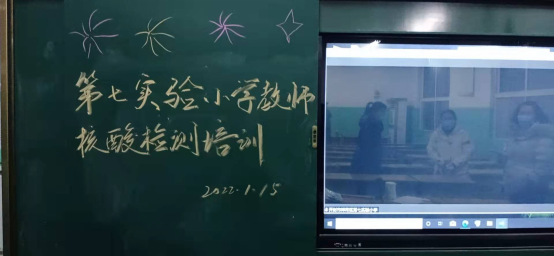 第七实验小学教师
核酸检测培训
2022.1.15